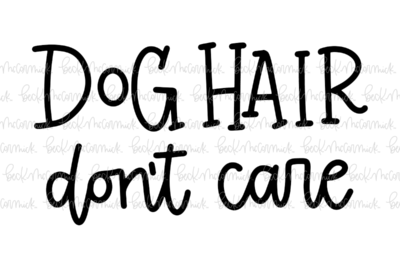 DOG HAIR
don't care